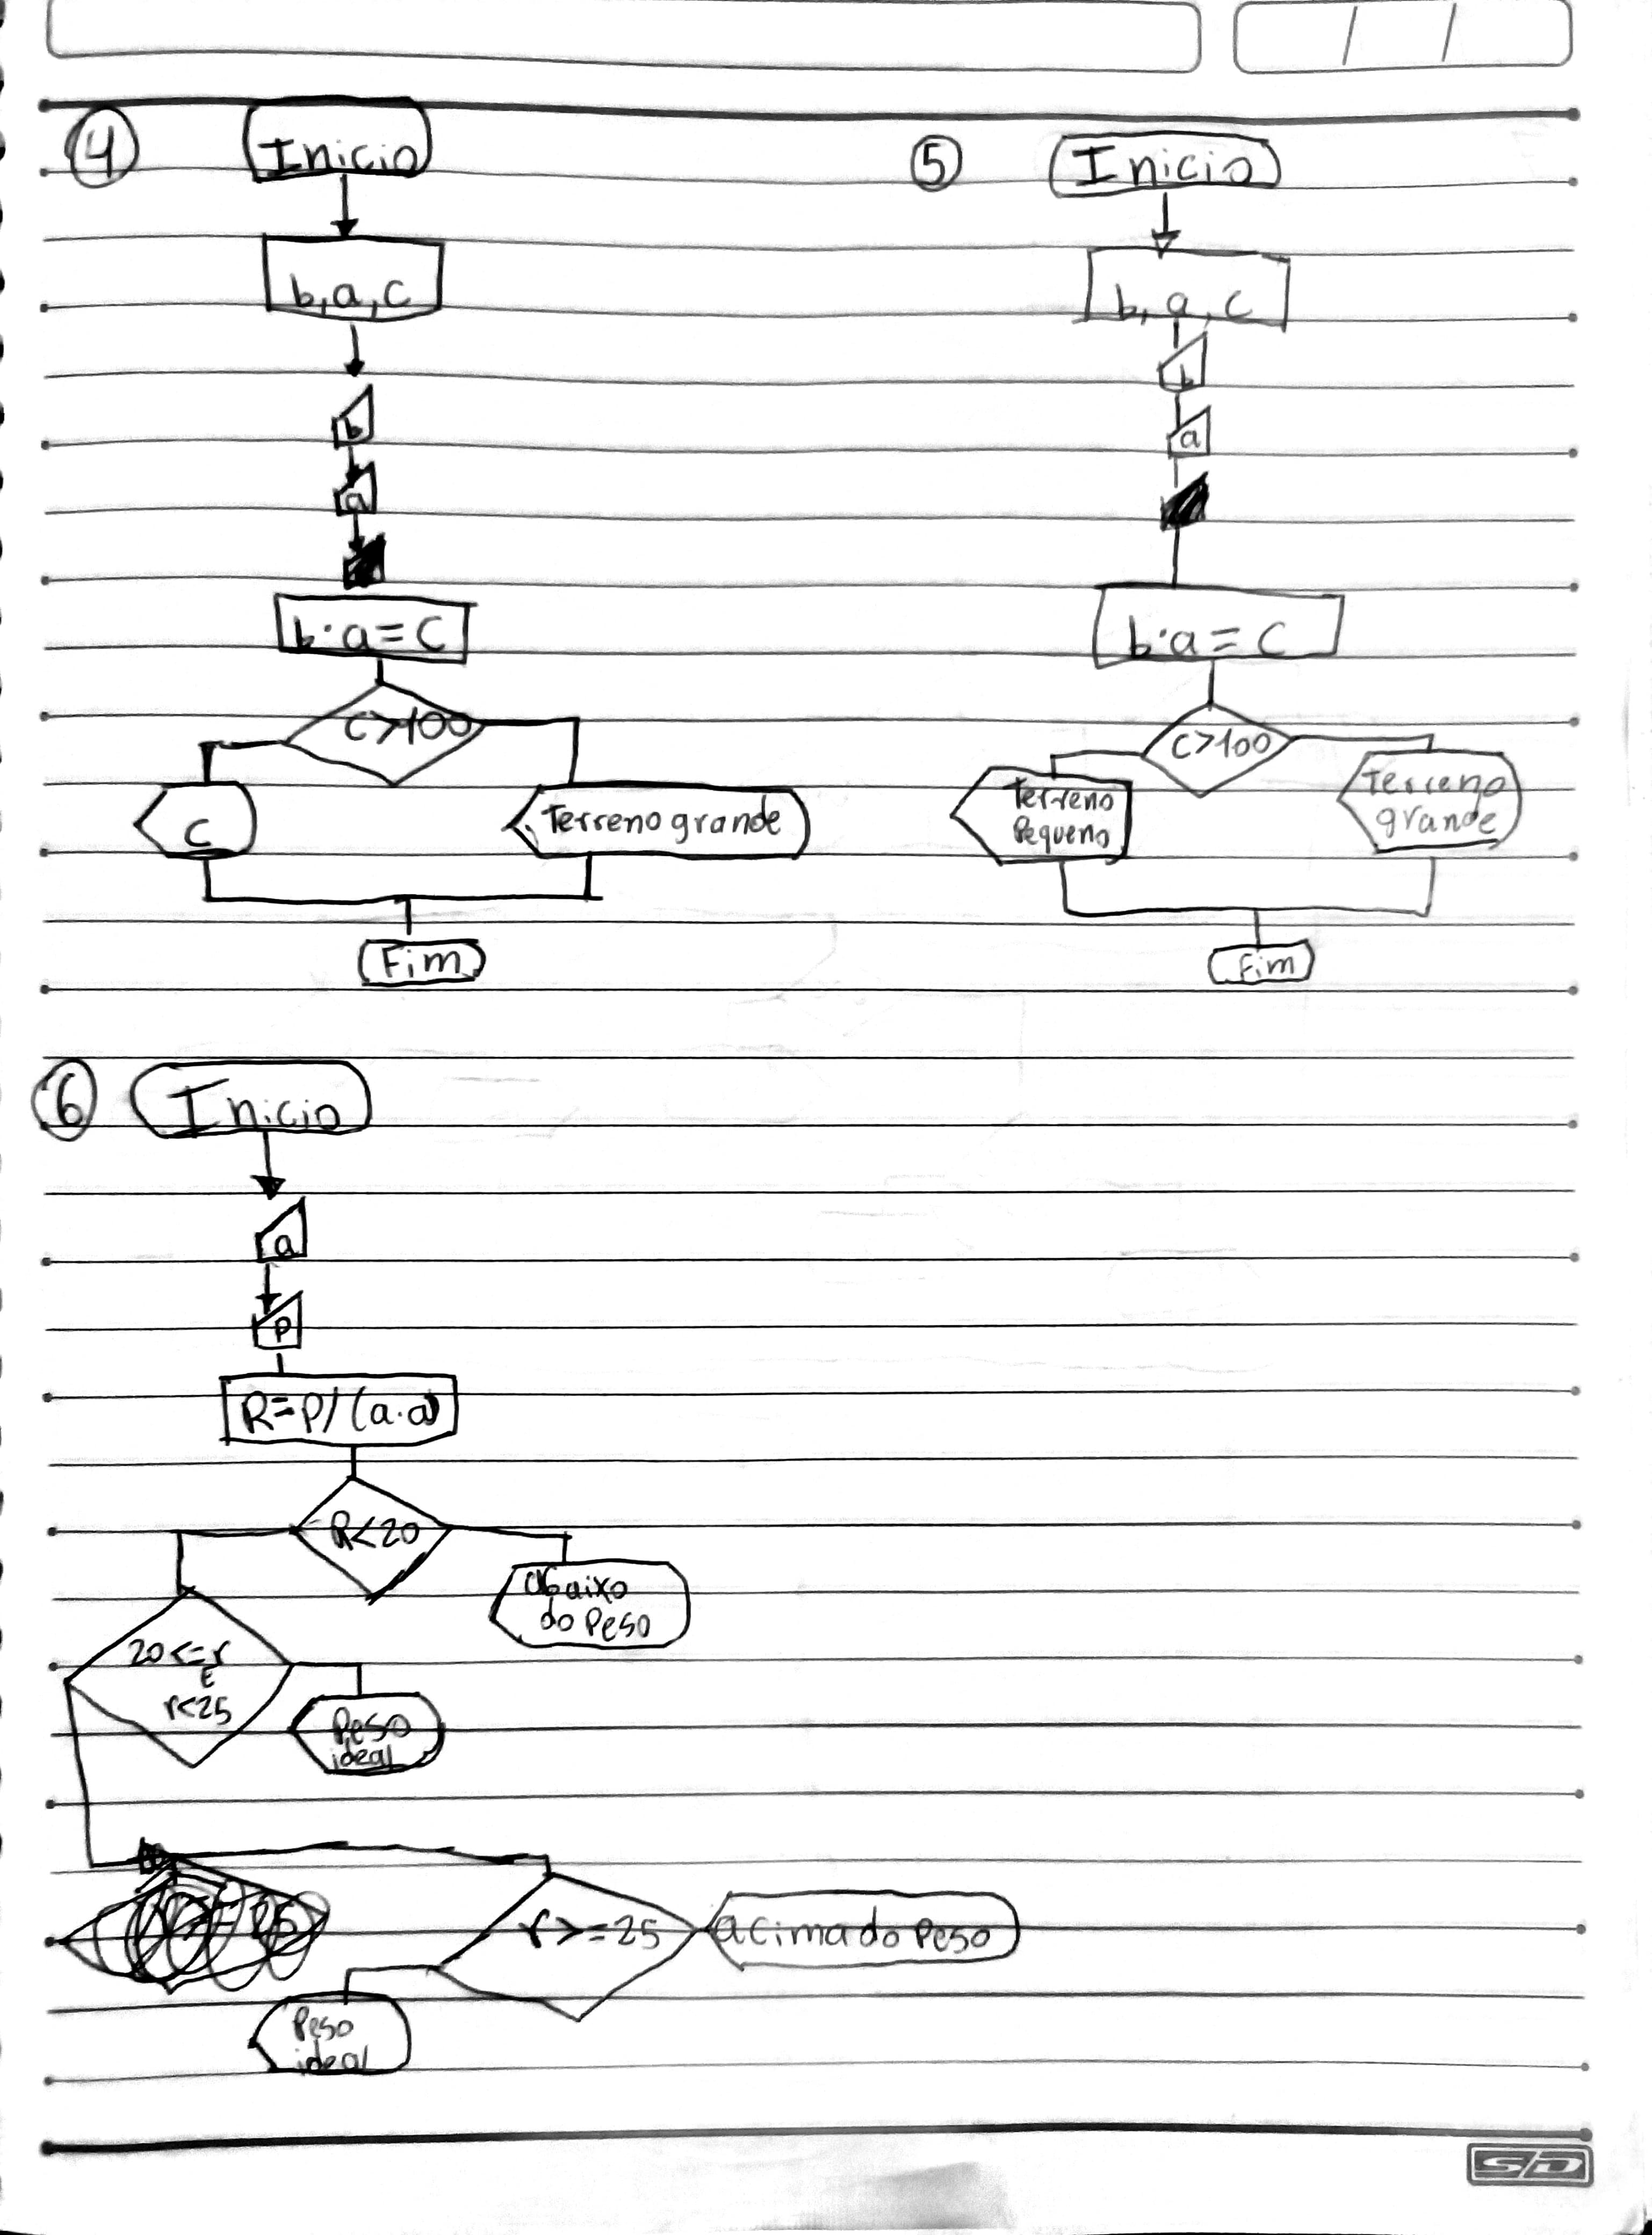 / /
4
Inicio
b,a,c
b
a
b·a=C
C>100
C
Terreno grande
Fim
5
Inicio
b,a,c
b
a
b·a=C
C>100
Terreno
Pequeno
Terreno
grande
Fim
6
Inicio
a
P
R=P/(a.a)
R<20
abaixo
do Peso
20<=r
E
r<25
Peso
ideal
r>=25
acima do Peso
Peso
ideal
SD